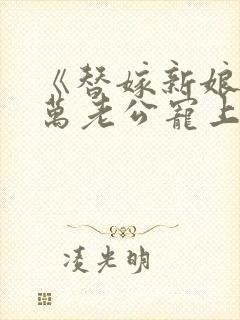 《替嫁新娘
萬老公寵上
凌光明